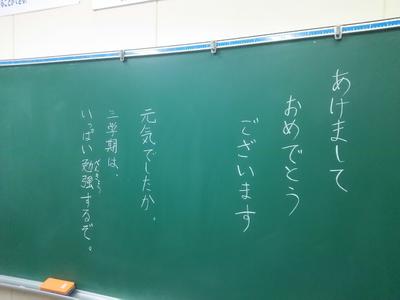 あけまして
おめでとう
ございます
元気でしたか。
三学期は、
いっぱい勉強するぞ。
べんきょう